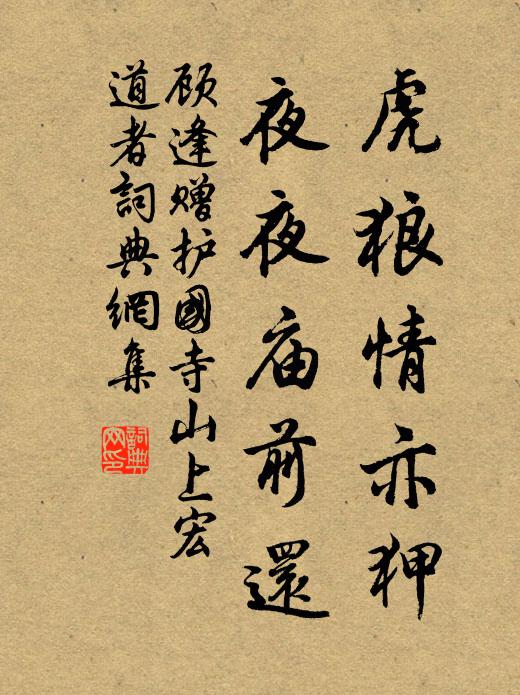 虎狼情亦狎
夜夜庙前還
顾逢赠护國寺山上宏
道者詞典網集
詞典网印